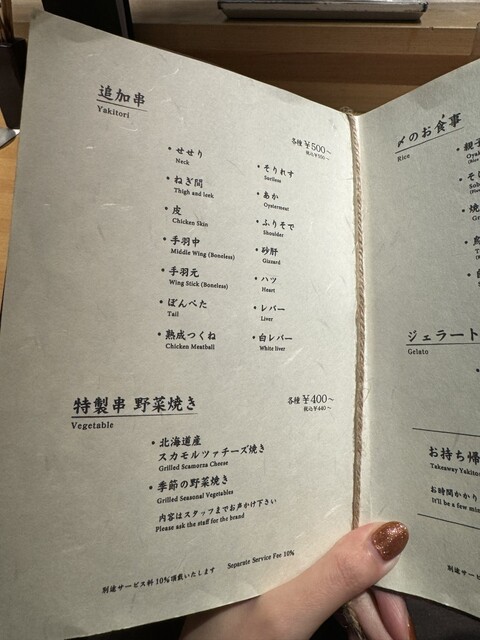 追加串
Yakitori
各種 ¥500～
税込¥550～
・せせり
Neck
・ねぎ間
Thigh and leek
・皮
Chicken Skin
・手羽中
Middle Wing (Boneless)
・手羽元
Wing Stick (Boneless)
・ぼんぺた
Tail
・熟成つくね
Chicken Meatball
・そりれす
Suriless
・あか
Oystermeat
・ふりそで
Shoulder
・砂肝
Gizzard
・ハツ
Heart
・レバー
Liver
・白レバー
White liver
特製串 野菜焼き
Vegetable
各種 ¥400～
税込 ¥440～
・北海道産
スカモルツァチーズ焼き
Grilled Scamorza Cheese
・季節の野菜焼き
Grilled Seasonal Vegetables
内容はスタッフまでお声かけ下さい
Please ask the staff for the brand
別途サービス料10%頂戴いたします Separate Service Fee 10%
〆のお食事
Rice
・親子
・そ
・焼
ジェラート
Gelato
お持ち帰
Takeaway Yakito
お時間かかり
It'll be a few min
別途サービ